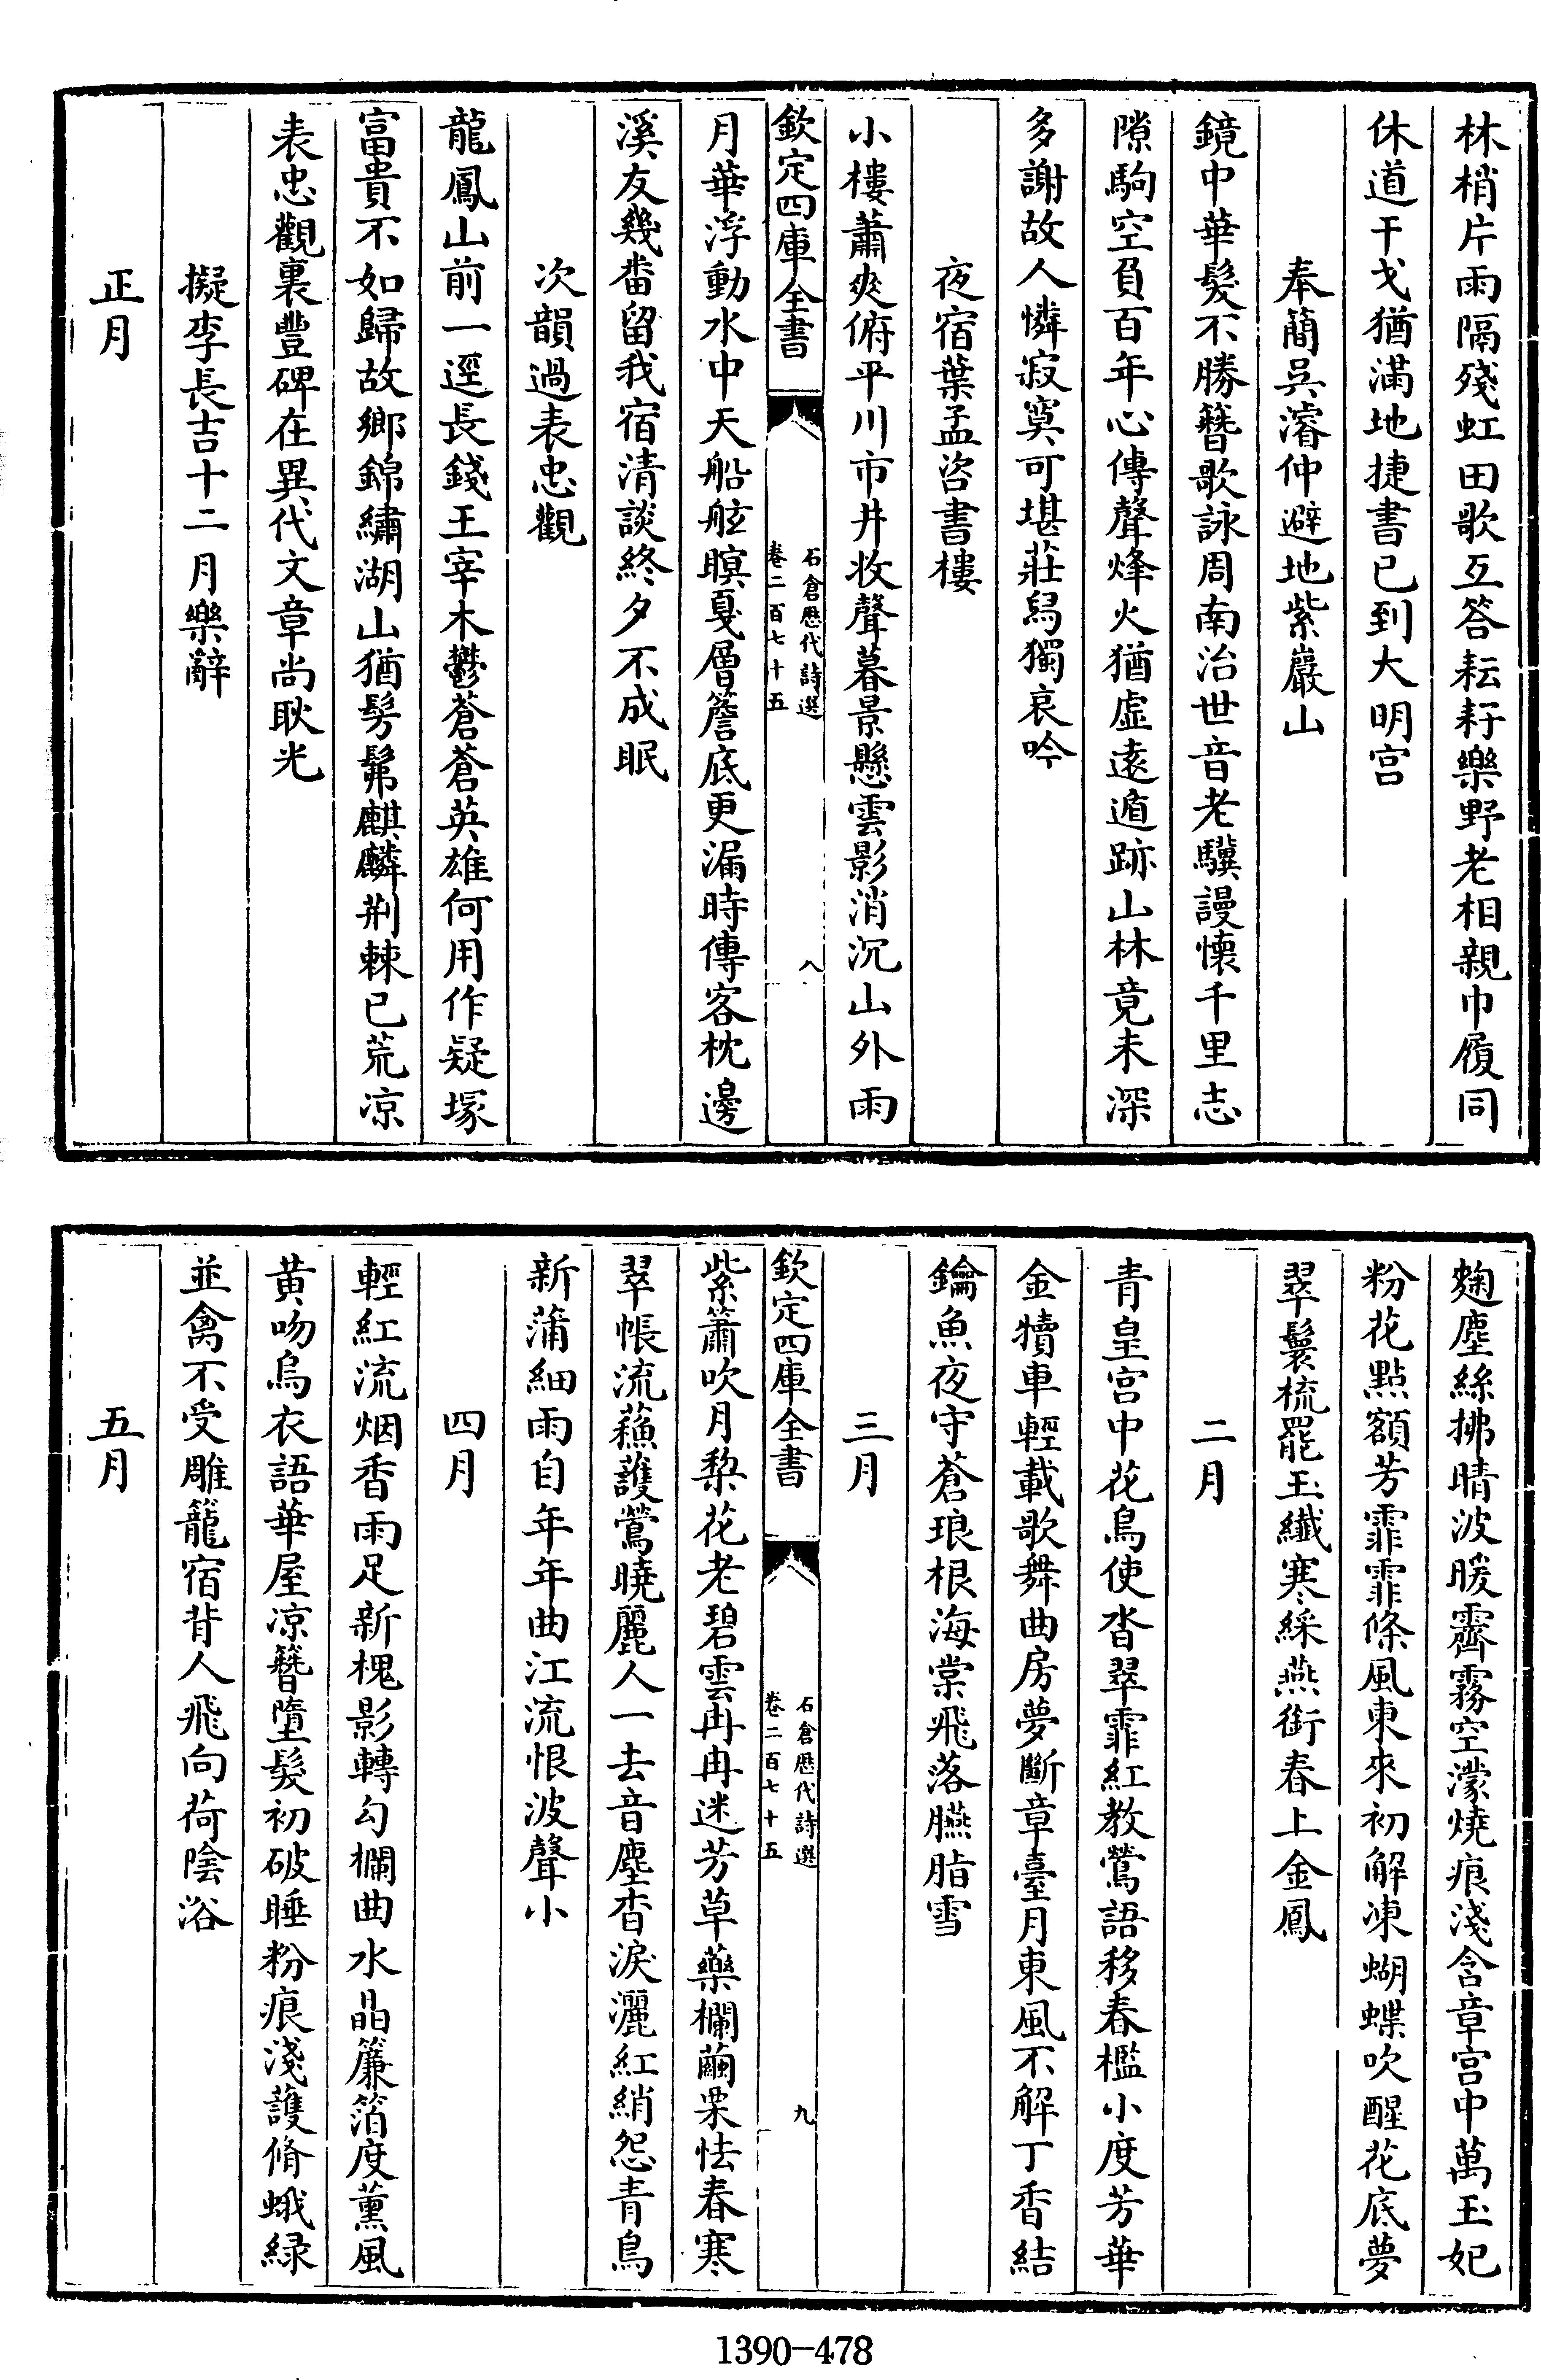 林梢片雨隔殘虹田歌互答耘耔樂野老相親巾履同
休道干戈猶滿地捷書已到大明宫
奉簡吳濬仲避地紫巖山
鏡中華髮不勝簪歌詠周南治世音老驥謾懷千里志
隙駒空負百年心傳聲烽火猶虛遠遁跡山林竟未深
多謝故人憐寂寞可堪莊舄獨哀吟
夜宿葉孟咨書樓
小樓蕭爽俯平川市井收聲暮景懸雲影消沉山外雨
欽定四庫全書
石倉歷代詩選
卷二百七十五
八
月華浮動水中天船舷瞑戛層簷底更漏時傳客枕邊
溪友幾畨留我宿清談終夕不成眠
次韻過表忠觀
龍鳳山前一逕長錢王宰木鬱蒼蒼英雄何用作疑塚
富貴不如歸故鄉錦繡湖山猶髣髴麒麟荆棘已荒凉
表忠觀裏豐碑在異代文章尚耿光
擬李長吉十二月樂辭
正月
麴塵絲拂晴波暖霽霧空濛燒痕淺含章宫中萬玉妃
粉花點額芳霏霏條風東來初解凍蝴蝶吹醒花底夢
翠鬟梳罷玉纖寒綵燕銜春上金鳳
二月
青皇宫中花鳥使沓翠霏紅教鶯語移春檻小度芳華
金犢車輕載歌舞曲房夢斷章臺月東風不解丁香結
鑰魚夜守蒼琅根海棠飛落臙脂雪
三月
紫簫吹月棃花老碧雲冉冉迷芳草藥欄繭栗怯春寒
欽定四庫全書
石倉歷代詩選
卷二百七十五
九
翠帳流蘓護鶯曉麗人一去音塵杳淚灑紅綃怨青鳥
新蒲細雨自年年曲江流恨波聲小
四月
輕紅流烟香雨足新槐影轉勾欄曲水晶簾箔度薰風
黄吻烏衣語華屋凉簪墮髮初破睡粉痕淺護脩蛾緑
並禽不受雕籠宿背人飛向荷陰浴
五月
1390-478